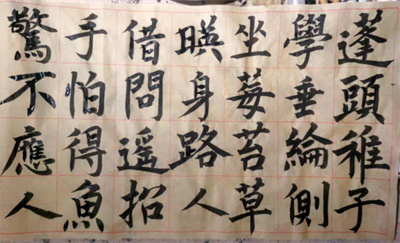 蓬頭稚子
學垂綸側
坐莓苔草
暎身路人
借問遥招
手怕得魚
驚不應人